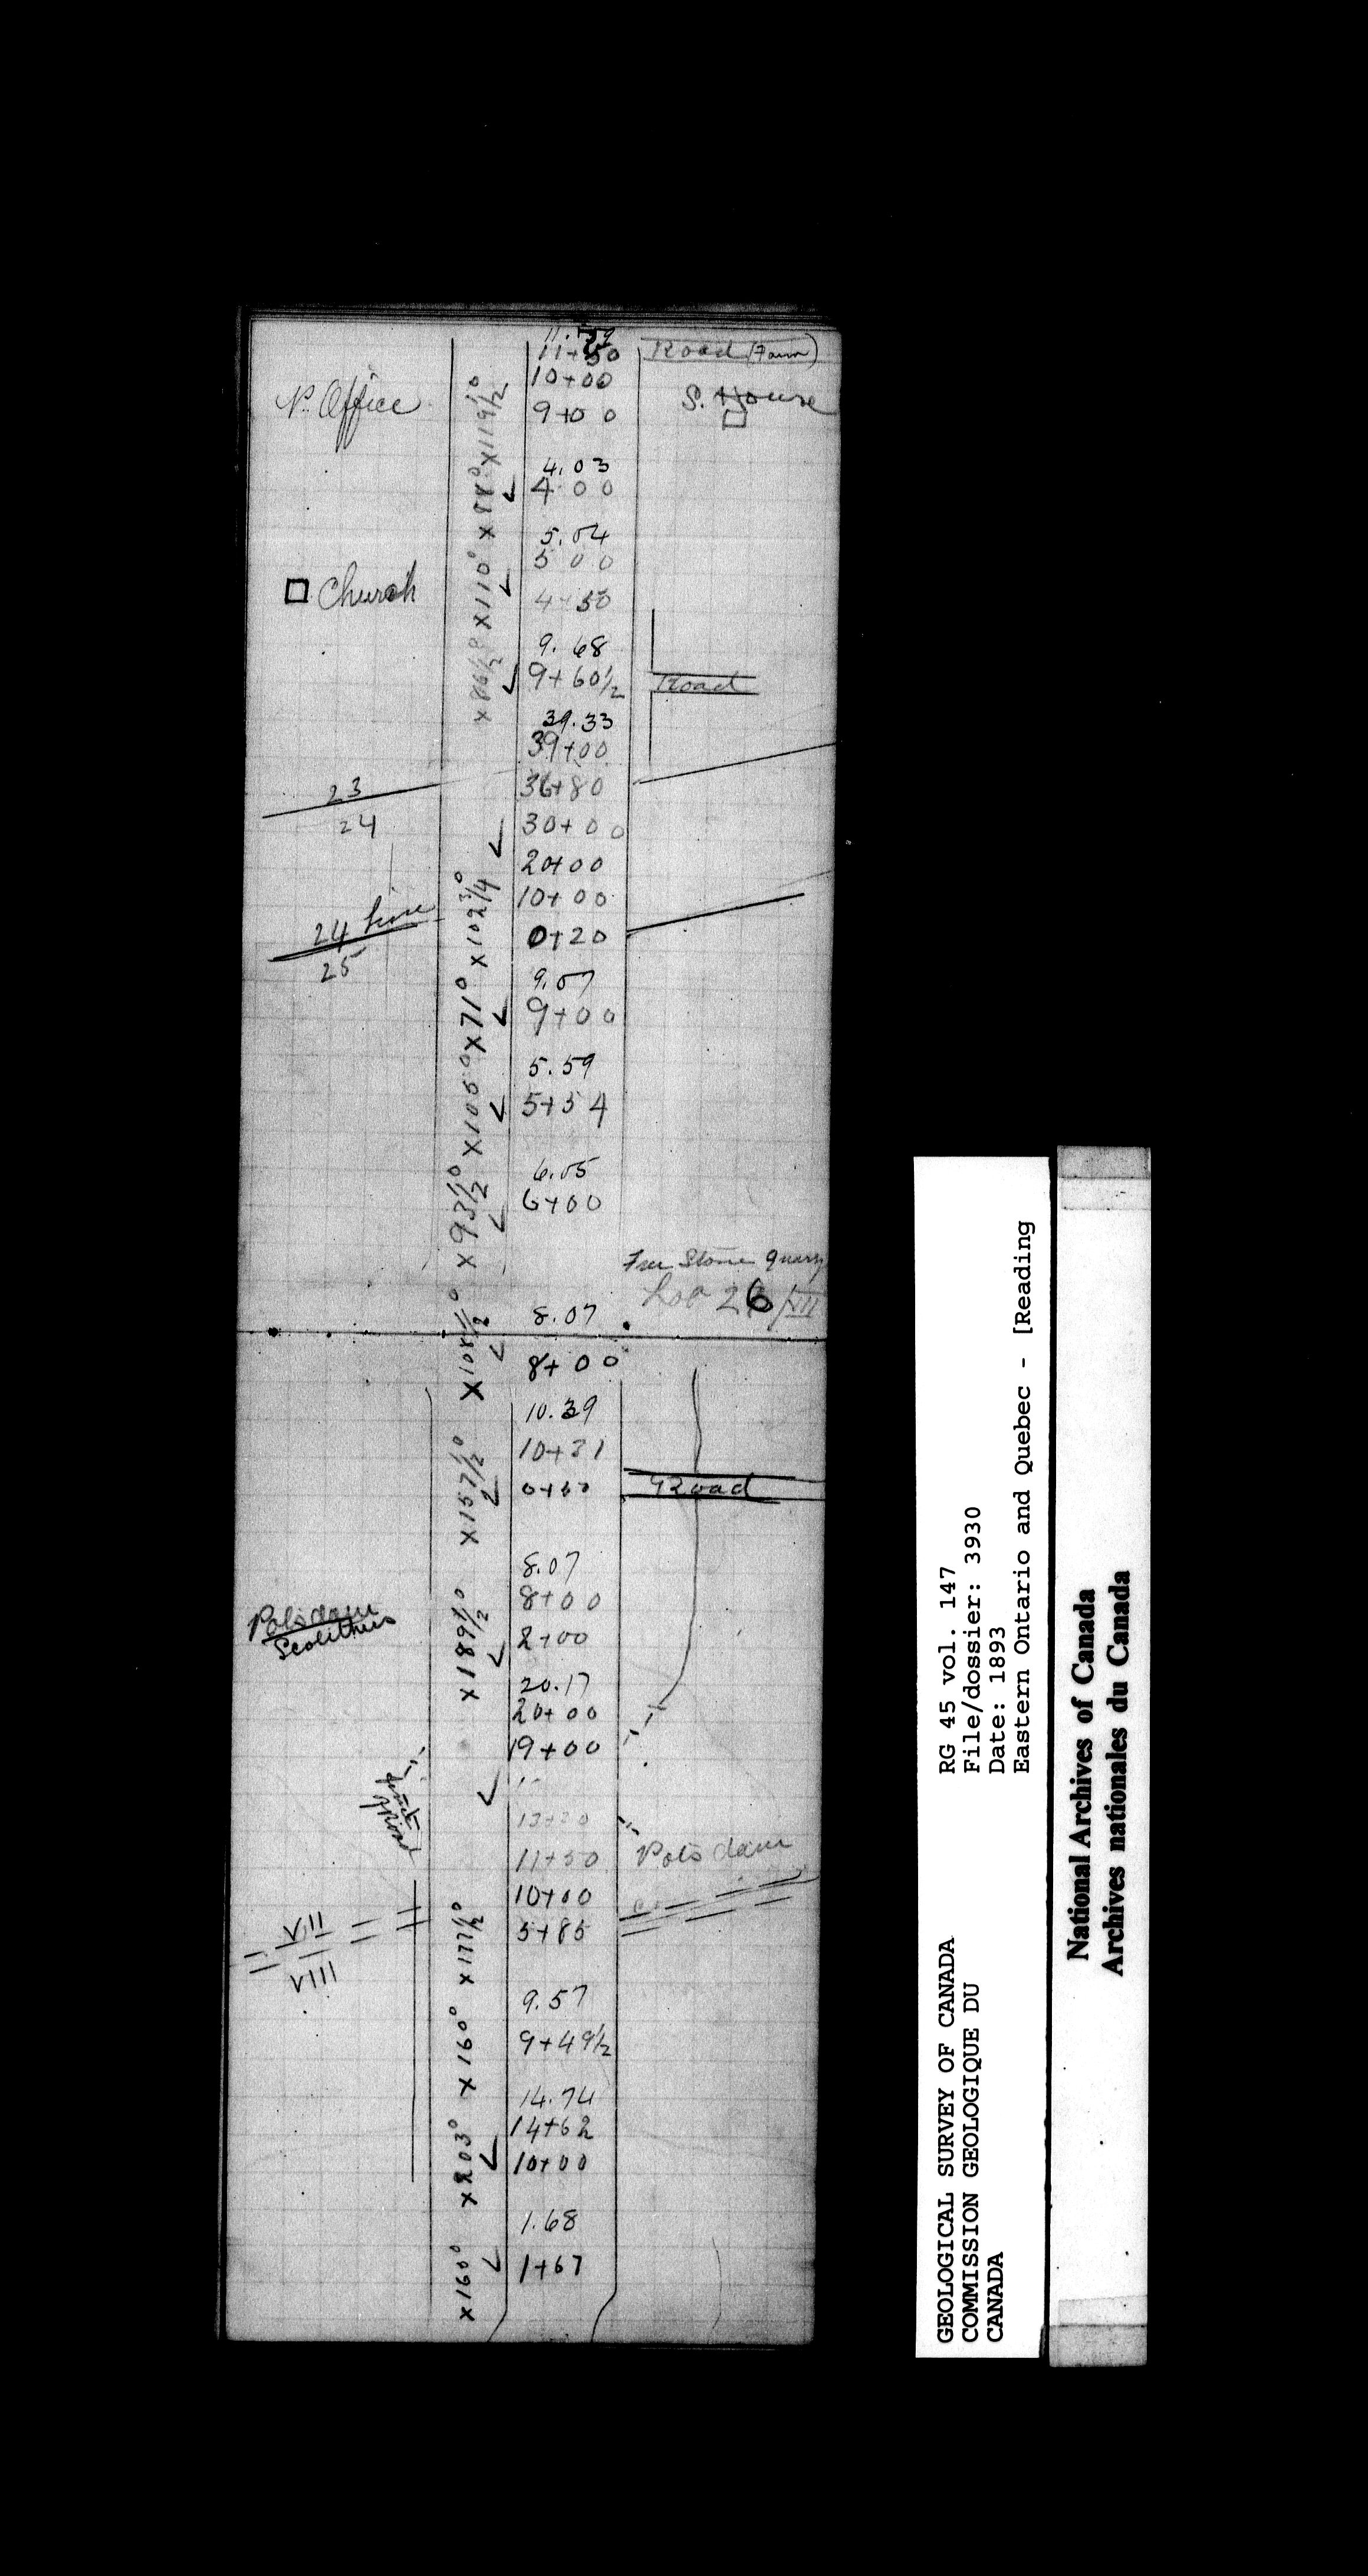 11.59
11+50 Road (Farm)
10+00
P. Office 9+00 S. House
x119½°
4.03
4 00
x88°
5.04
5 00
x110°
Church
4+50
9.68
9+60½ Road
x86½°
39.33
39+00
23 36+80
24 30+00
20+00
10+00
x102¾°
24 Line 0+20
25
9.07
9+00
x71°
5.59
5+54
x105°
6.05
6+00
x93½°
Free Stone Quarry
Lot 26/VII
8.07
8+00
x108½°
10.39
10+31
x157½°
Road
8.07
8+00
2+00
x189½°
Potsdam
Scolithus
20.17
20+00
19+00
Road
13+20
11+50 Potsdam
10+00
VII 5+85
VIII
x177½°
9.57
9+49½
x160°
14.74
14+62
10+00
x203°
1.68
1+67
x160°
GEOLOGICAL SURVEY OF CANADA
COMMISSION GEOLOGIQUE DU
CANADA
RG 45 vol. 147
File/dossier: 3930
Date: 1893
Eastern Ontario and Quebec - [Reading
National Archives of Canada
Archives nationales du Canada